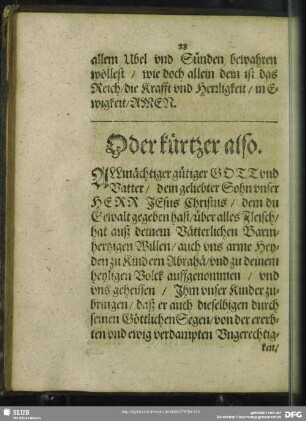 28
allem Ubel vnd Sünden bewahren
wöllest / wie doch allein dein ist das
Reich / die Krafft vnd Herrligkeit / in E-
wigkeit / AMEN.
Oder kürtzer also.
ALlmächtiger gütiger GOTT vnd
Vatter / dein geliebter Sohn vnser
HERR JEsus Christus / dem du
Gewalt gegeben hast / über alles Fleisch /
hat auß deinem Vätterlichen Barm-
hertzigen Willen / auch vns arme Hey-
den zu Kindern Abrahä / vnd zu deinem
heyligen Volck auffgenommen / vnd
vns geheissen / Jhm vnser Kinder zu-
bringen / daß er auch dieselbigen durch
seinen Göttlichen Segen / von der ererb-
ten vnd ewig verdampten Vngerechtig-
keit /
SLUB
Wir führen Wissen.
DFG